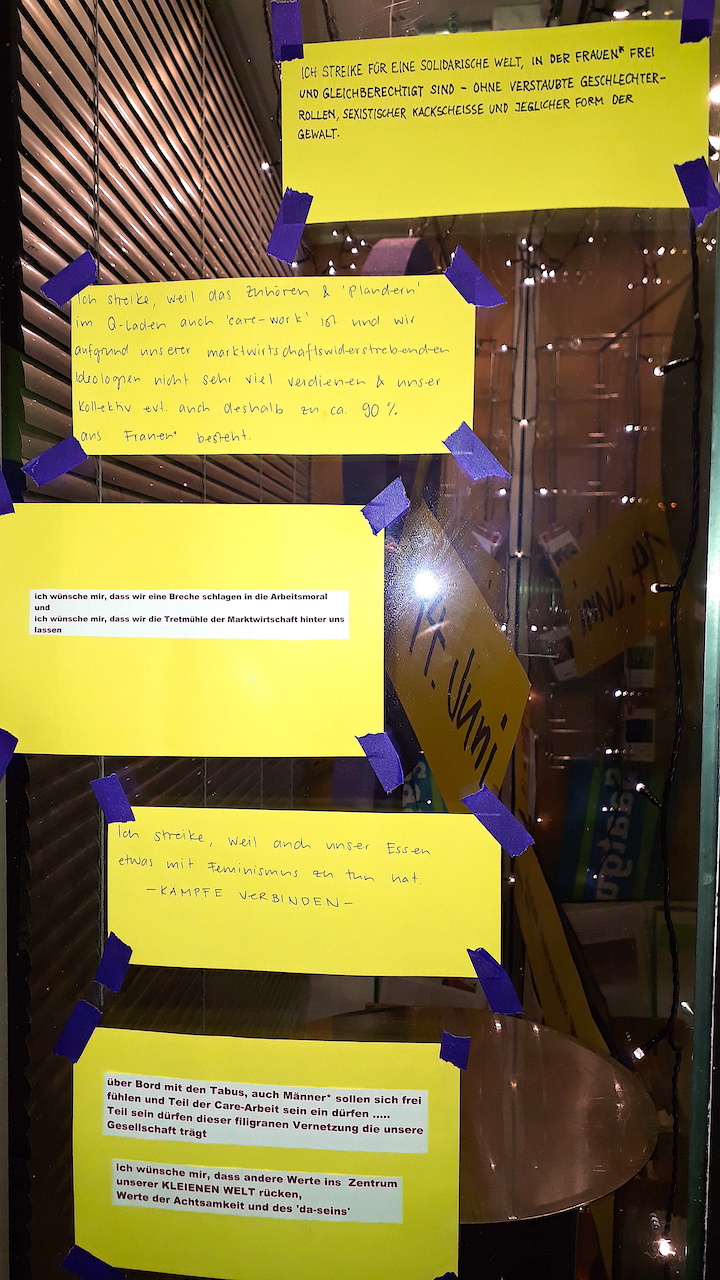 ICH STREIKE FÜR EINE SOLIDARISCHE WELT, IN DER FRAUEN* FREI
UND GLEICHBERECHTIGT SIND – OHNE VERSTAUBTE GESCHLECHTER-
ROLLEN, SEXISTISCHER KACKSCHEISSE UND JEGLICHER FORM DER
GEWALT.
Ich streike, weil das Zuhören & 'Plaudern'
im Q-Laden auch 'care-work' ist und wir
aufgrund unserer marktwirtschaftswiderstrebenden
Ideologien nicht sehr viel verdienen & unser
Kollektiv evt. auch deshalb zu ca. 90 %
aus Frauen* besteht.
ich wünsche mir, dass wir eine Breche schlagen in die Arbeitsmoral
und
ich wünsche mir, dass wir die Tretmühle der Marktwirtschaft hinter uns
lassen
14. Juni
14. Juni
Ich streike, weil auch unser Essen
etwas mit Feminismus zu tun hat.
–KÄMPFE VERBINDEN–
über Bord mit den Tabus, auch Männer* sollen sich frei
fühlen und Teil der Care-Arbeit sein ein dürfen .....
Teil sein dürfen dieser filigranen Vernetzung die unsere
Gesellschaft trägt
ich wünsche mir, dass andere Werte ins Zentrum
unserer KLEIENEN WELT rücken,
Werte der Achtsamkeit und des 'da-seins'